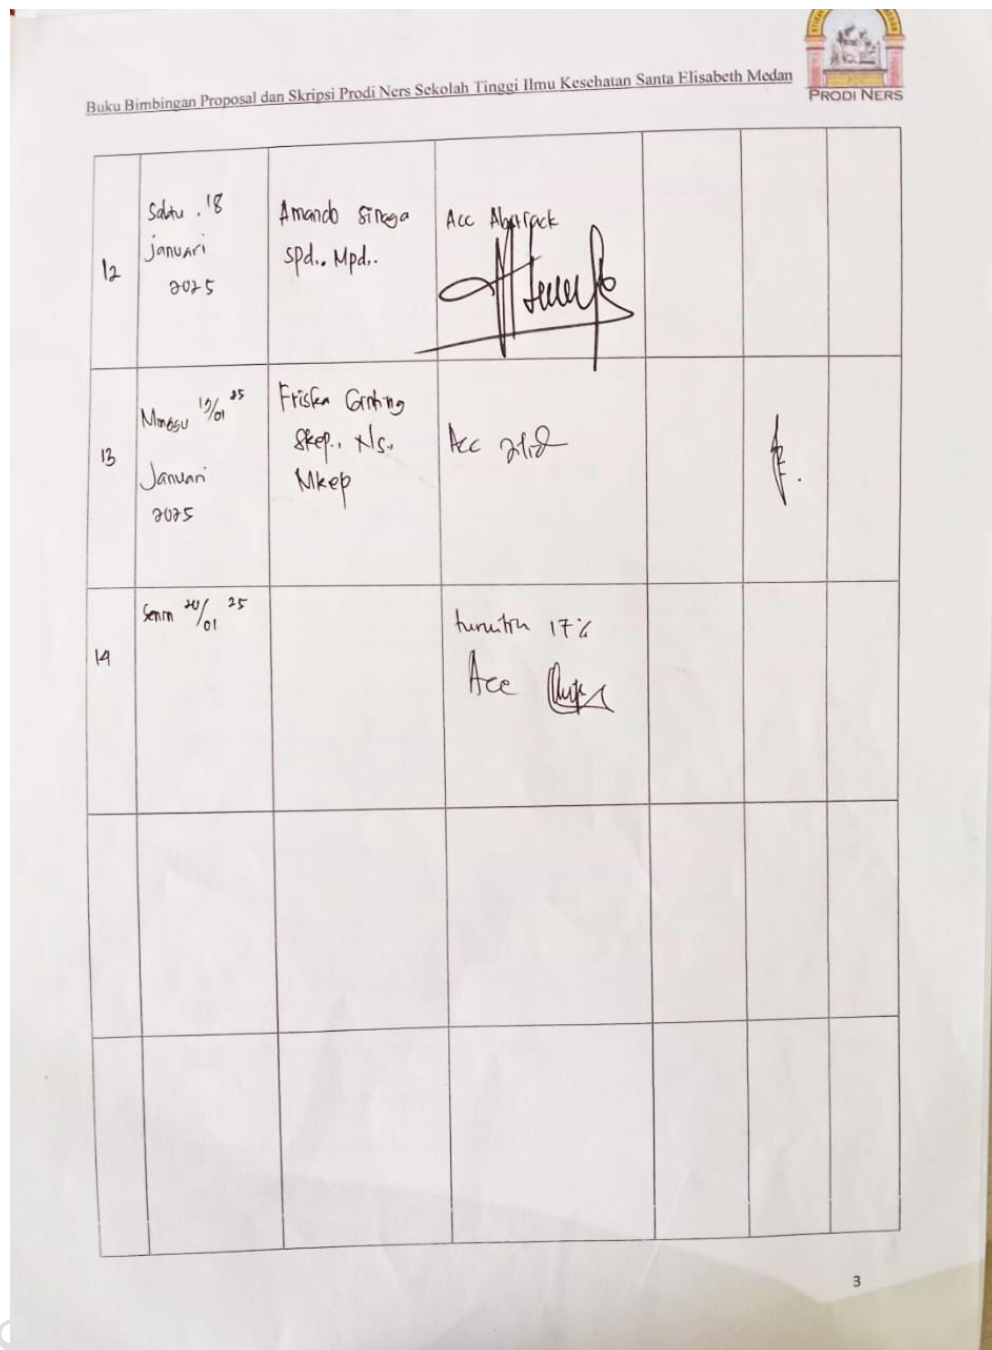 Buku Bimbingan Proposal dan Skripsi Prodi Ners Sekolah Tinggi Ilmu Kesehatan Santa Elisabeth Medan
PRODI NERS
12
Sabtu, 18
januari
2025
Amando Sinaga
Spd., Mpd.
Acc Abstrack
13
Minggu 19/01 25
Januari
2025
Friska Ginting
Skep., Ns.,
Mkep
Acc
14
Senin 20/01 25
turnitin 17%
Acc
3